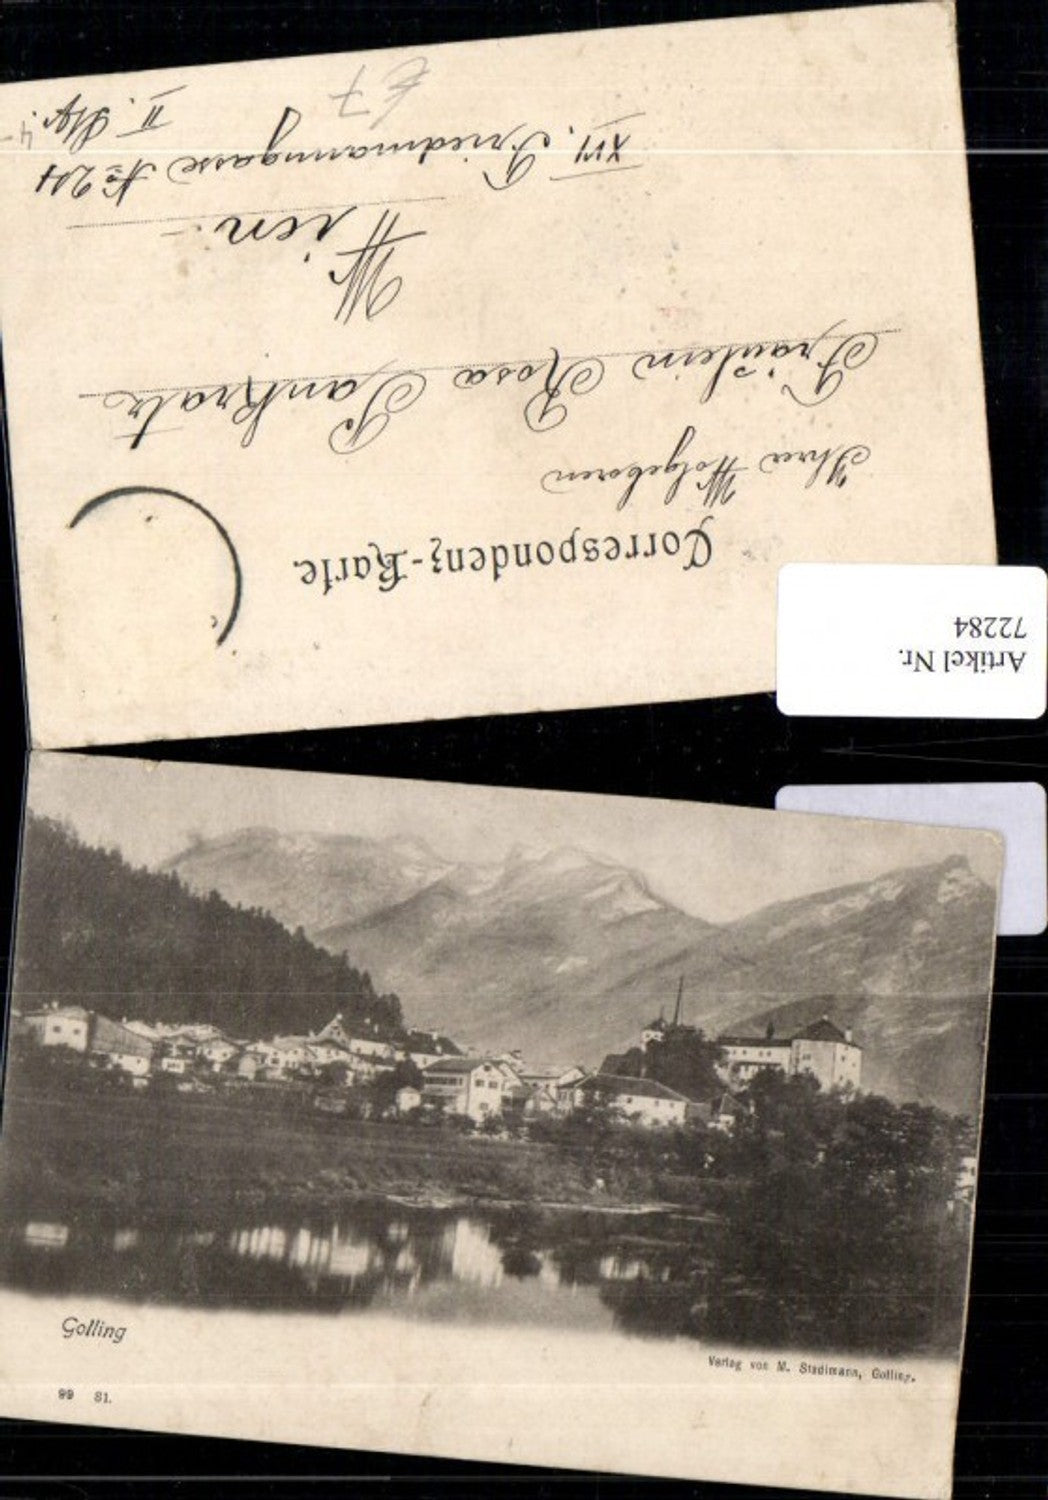 Correspondenz-Karte.
Ihre Wolgeboren
Fräulein Rosa Pankratz
Wien.
XVI. Friedmanngasse No 24
II. Stg. 4
€ 7
Artikel Nr.
72284
Golling
Verlag von M. Stadlmann, Golling.
99 81.